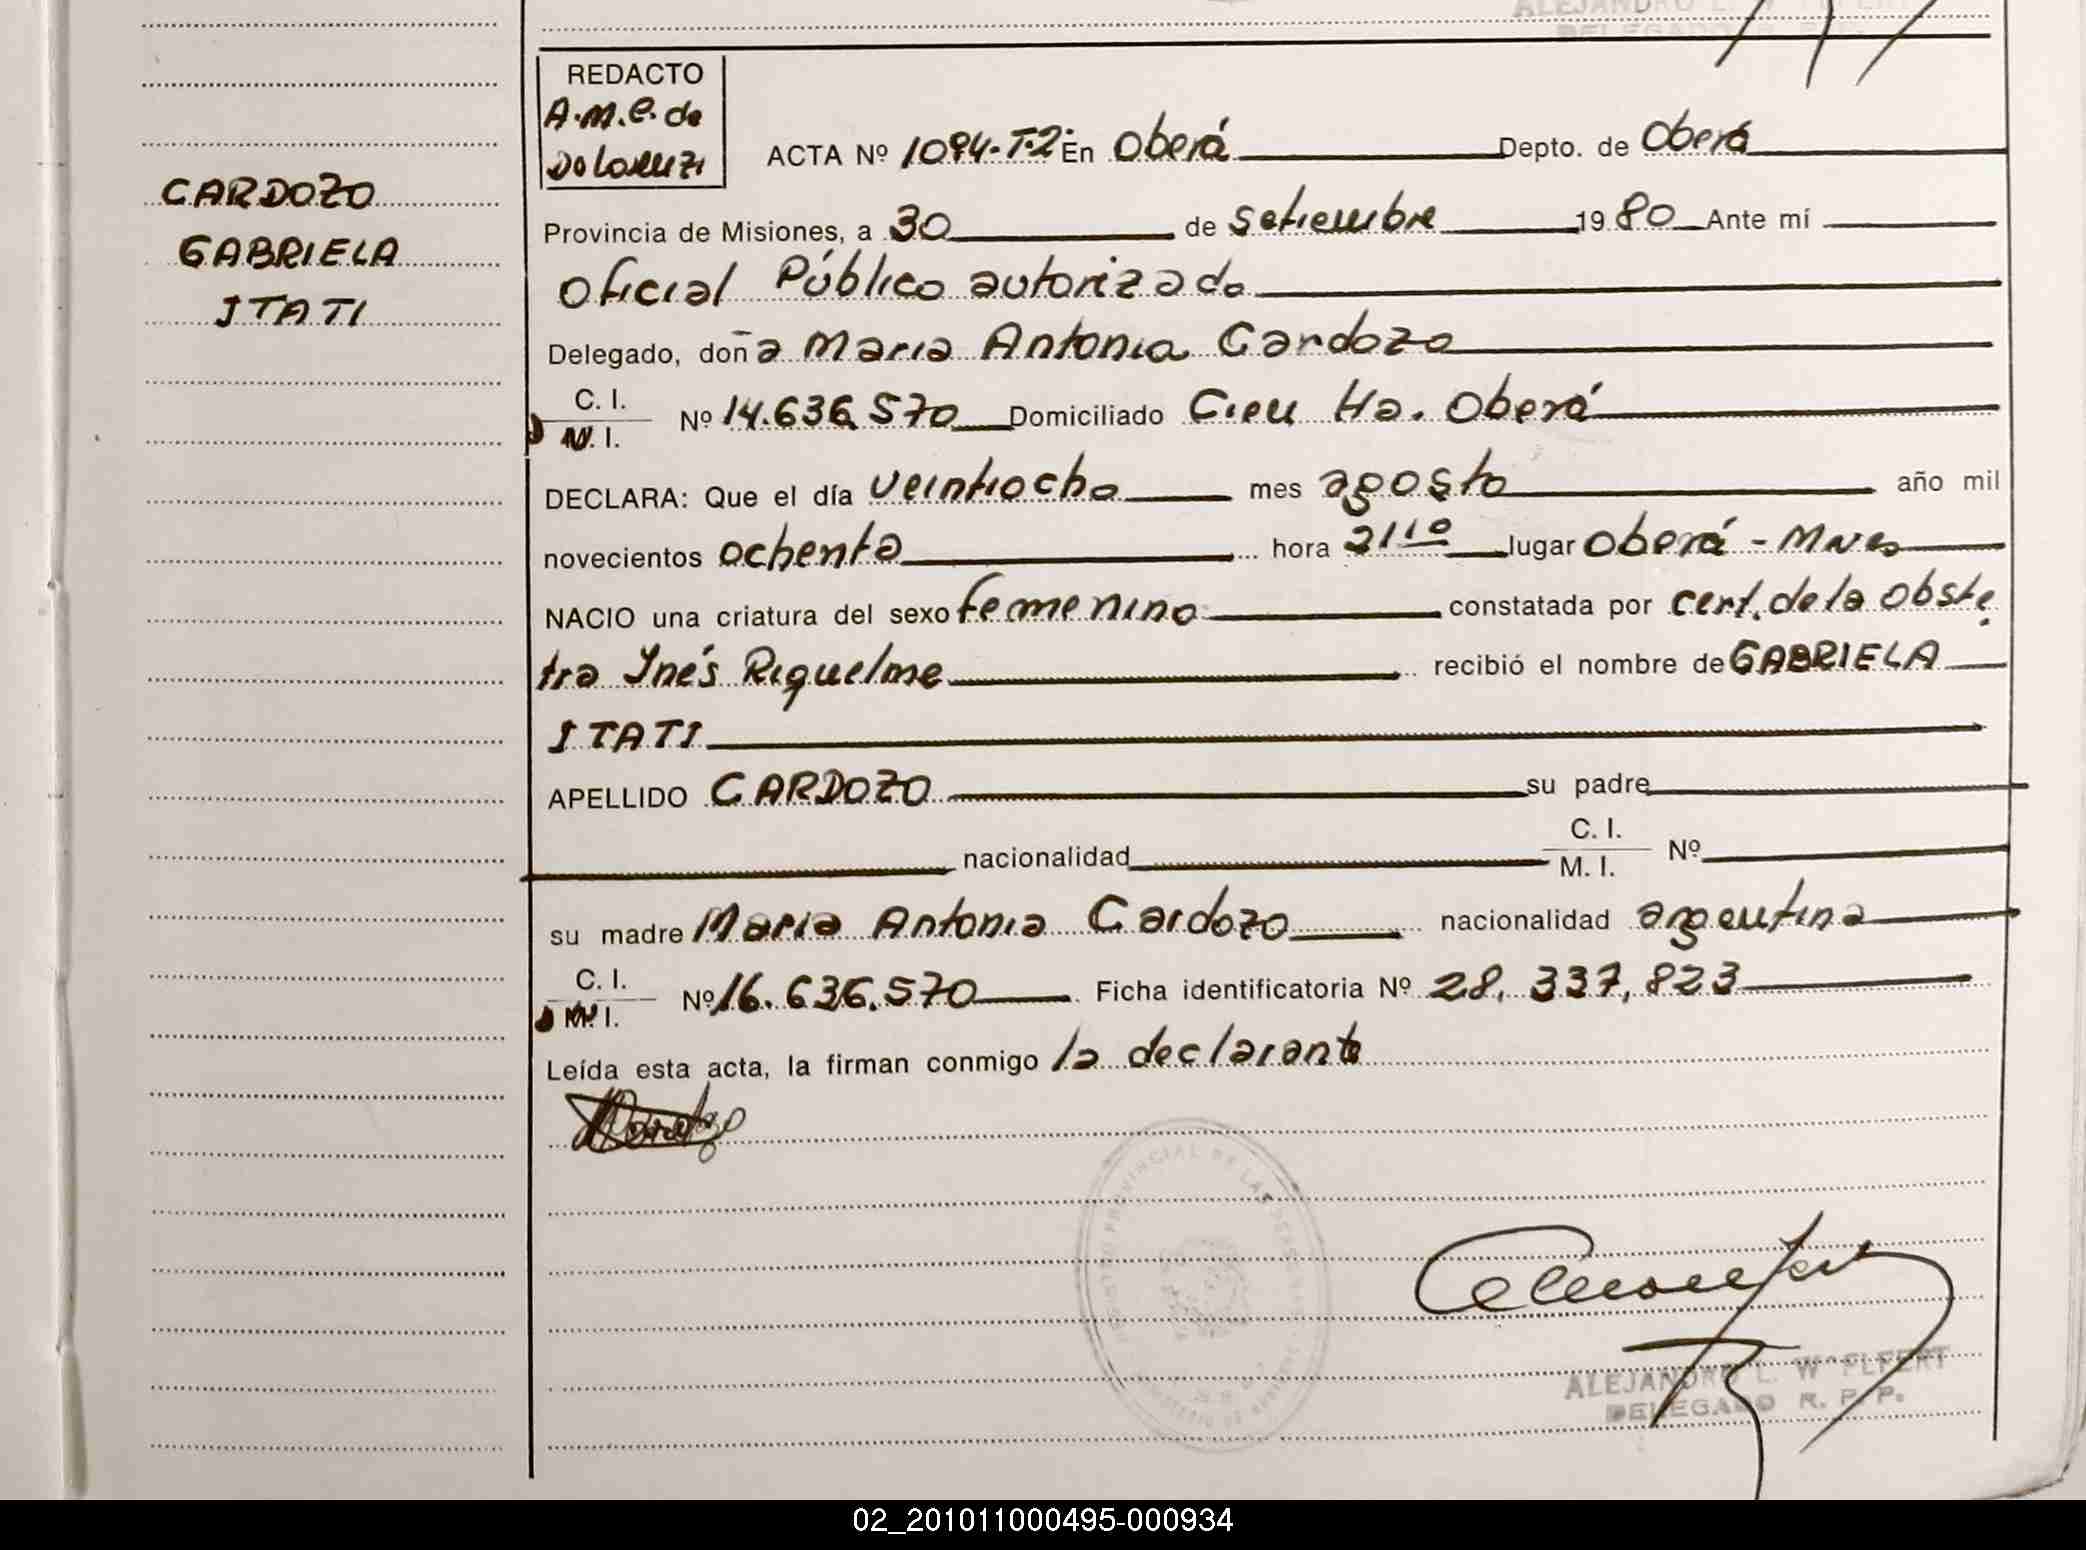 ALEJANDRO L. W ELFERT
DELEGADO R. P. P.
CARDOZO
GABRIELA
ITATI
REDACTO
A.M.E. de
ACTA Nº 1094-T-2 En Oberá Depto. de Oberá
Provincia de Misiones, a 30 de Setiembre 1980 Ante mí
Oficial Público autorizado
Delegado, doña Maria Antonia Cardozo
C. I.
Nº 14.636.570 Domiciliado Cieu Ha. Oberá
D M. I.
DECLARA: Que el día veintiocho mes agosto año mil
novecientos ochenta hora 21 10 lugar Oberá - Mnes
NACIO una criatura del sexo femenino constatada por cert. de la obste
tra Inés Riquelme recibió el nombre de GABRIELA
ITATI
APELLIDO CARDOZO su padre
nacionalidad C. I. Nº
M. I.
su madre Maria Antonia Cardozo nacionalidad argentina
C. I.
Nº 16.636.570 Ficha identificatoria Nº 28.337.823
D M. I.
Leída esta acta, la firman conmigo la declarante
REGISTRO PROVINCIAL DE LAS PERSONAS
ALEJANDRO L. W ELFERT
DELEGADO R. P. P.
02_201011000495-000934